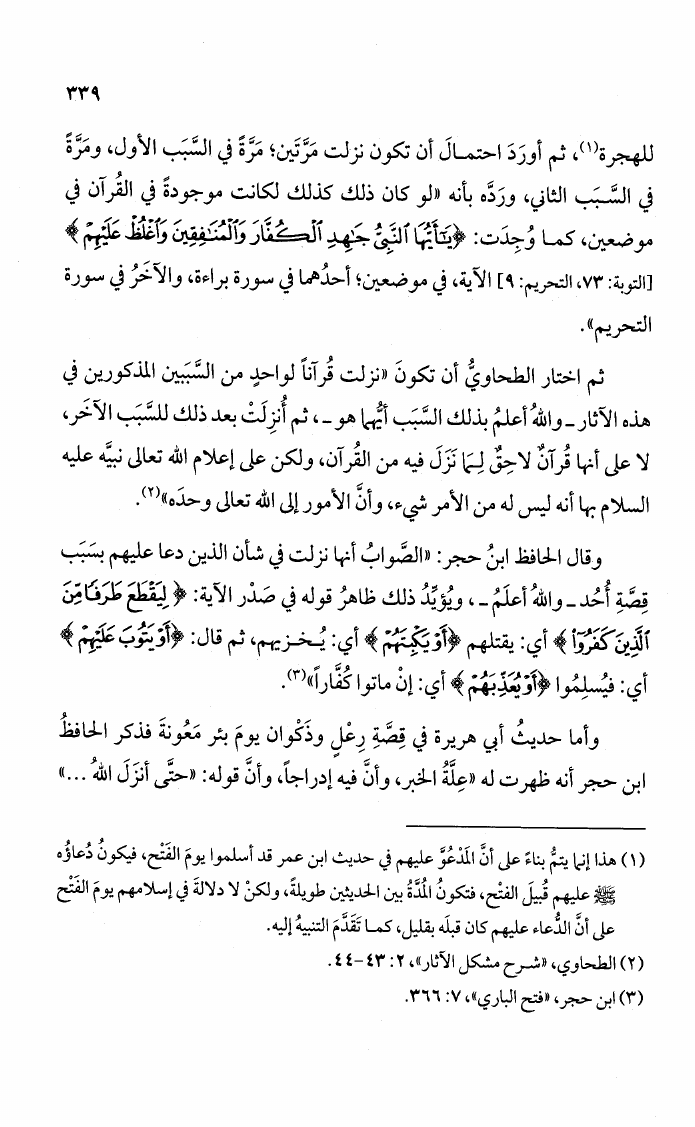 ٣٣٩
للهجرة(١)، ثم أورَدَ احتمـالَ أن تكون نزلت مَرَّتَين؛ مَرَّةً في السَّبَب الأول، ومَرَّةً
في السَّـبَب الثاني، ورَدَّه بأنه «لو كان ذلك كذلك لكانت موجودةً في القُرآن في
موضعين، كمـا وُجِدَت: ﴿يَـٰٓأَيُّهَا ٱلنَّبِيُّ جَـٰهِدِ ٱلۡكُفَّارَ وَٱلۡمُنَـٰفِقِينَ وَٱغۡلُظۡ عَلَيۡهِمۡ﴾
[التوبة: ٧٣، التحريم: ٩] الآية، في موضعين؛ أحدُهما في سورة براءة، والآخَرُ في سورة
التحريم».
ثم اختار الطحاويُّ أن تكونَ «نزلت قُرآناً لواحدٍ من السَّبَبين المذكورين في
هذه الآثار ـ واللهُ أعلمُ بذلك السَّبَب أيُّهما هو ـ، ثم أُنزِلَتْ بعد ذلك للسَّبَب الآخر،
لا على أنها قُرآنٌ لاحِقٌ لِـمَا نَزَلَ فيه من القُرآن، ولكن على إعلام الله تعالى نبيَّه عليه
السلام بها أنه ليس له من الأمر شيء، وأنَّ الأمور إلى الله تعالى وحدَه»(٢).
وقال الحافظ ابنُ حجر: «الصَّوابُ أنها نزلت في شأن الذين دعا عليهم بسَبَب
قِصَّةِ أُحُد ـ واللهُ أعلَمُ ـ، ويُؤيِّدُ ذلك ظاهرُ قوله في صَدْر الآية: ﴿لِيَقۡطَعَ طَرَفًا مِّنَ
ٱلَّذِينَ كَفَرُوٓاْ﴾ أي: يقتلهم ﴿أَوۡ يَكۡبِتَهُمۡ﴾ أي: يُـخـزيهم، ثم قال: ﴿أَوۡ يَتُوبَ عَلَيۡهِمۡ﴾
أي: فيُسلِمُوا ﴿أَوۡ يُعَذِّبَهُمۡ﴾ أي: إنْ ماتوا كُفَّاراً»(٣).
وأما حديثُ أبي هريرة في قِصَّةِ رِعْلٍ وذَكْوان يومَ بئر مَعُونةَ فذكر الحافظُ
ابن حجر أنه ظهرت له «عِلَّةُ الخبر، وأنَّ فيه إدراجاً، وأنَّ قوله: «حتَّى أنزَلَ اللهُ ...»
(١) هذا إنما يتمُّ بناءً على أنَّ المَدْعُوَّ عليهم في حديث ابن عمر قد أسلموا يومَ الفَتْح، فيكونُ دُعاؤُه
ﷺ عليهم قُبيلَ الفتْح، فتكونُ المُدَّةُ بين الحديثين طويلةً، ولكنْ لا دلالةَ في إسلامهم يومَ الفَتْح
على أنَّ الدُّعاء عليهم كان قبلَه بقليل، كمـا تَقَدَّمَ التنبيهُ إليه.
(٢) الطحاوي، «شـرح مشكل الآثار»، ٢: ٤٣-٤٤.
(٣) ابن حجر، «فتح الباري»، ٧: ٣٦٦.